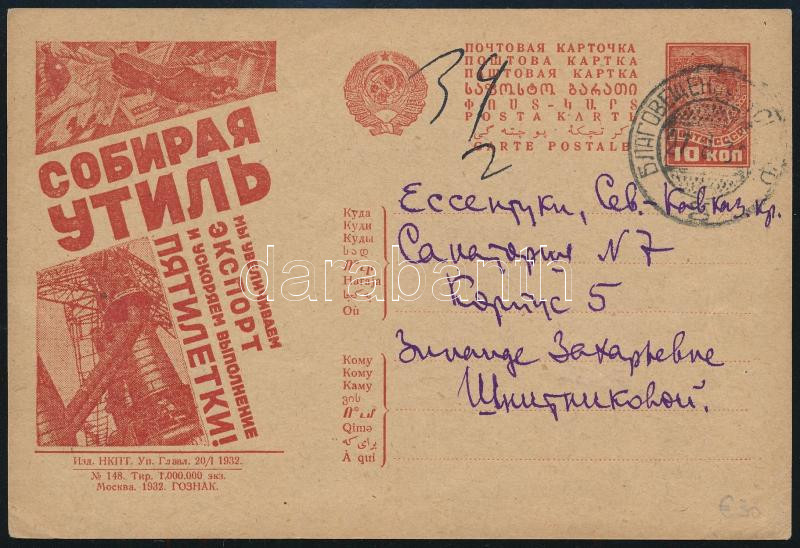 СОБИРАЯ
УТИЛЬ
МЫ УВЕЛИЧИВАЕМ
ЭКСПОРТ
И УСКОРЯЕМ ВЫПОЛНЕНИЕ
ПЯТИЛЕТКИ!
Изд. НКПТ. Уп. Главл. 20/I 1932.
№ 148. Тир. 1,000.000 экз.
Москва. 1932. ГОЗНАК.
34
2
ПОЧТОВАЯ КАРТОЧКА
ПОШТОВА КАРТКА
ПОШТОВАЯ КАРТКА
ՓՈՍՏ-ԿԱՐՏ
POSTA KARTЬ
CARTE POSTALE
10 КОП
БЛАГОВЕЩЕН
Куда
Куди
Куды
სად
Haraja
Où
Кому
Кому
Каму
ვის
Qimə
À qui
Ессентуки, Сев.-Кавказ. кр.
Санатория N 7
Корпус 5
Зинаиде Захарьевне
Шнитниковой.
darabanth
€30